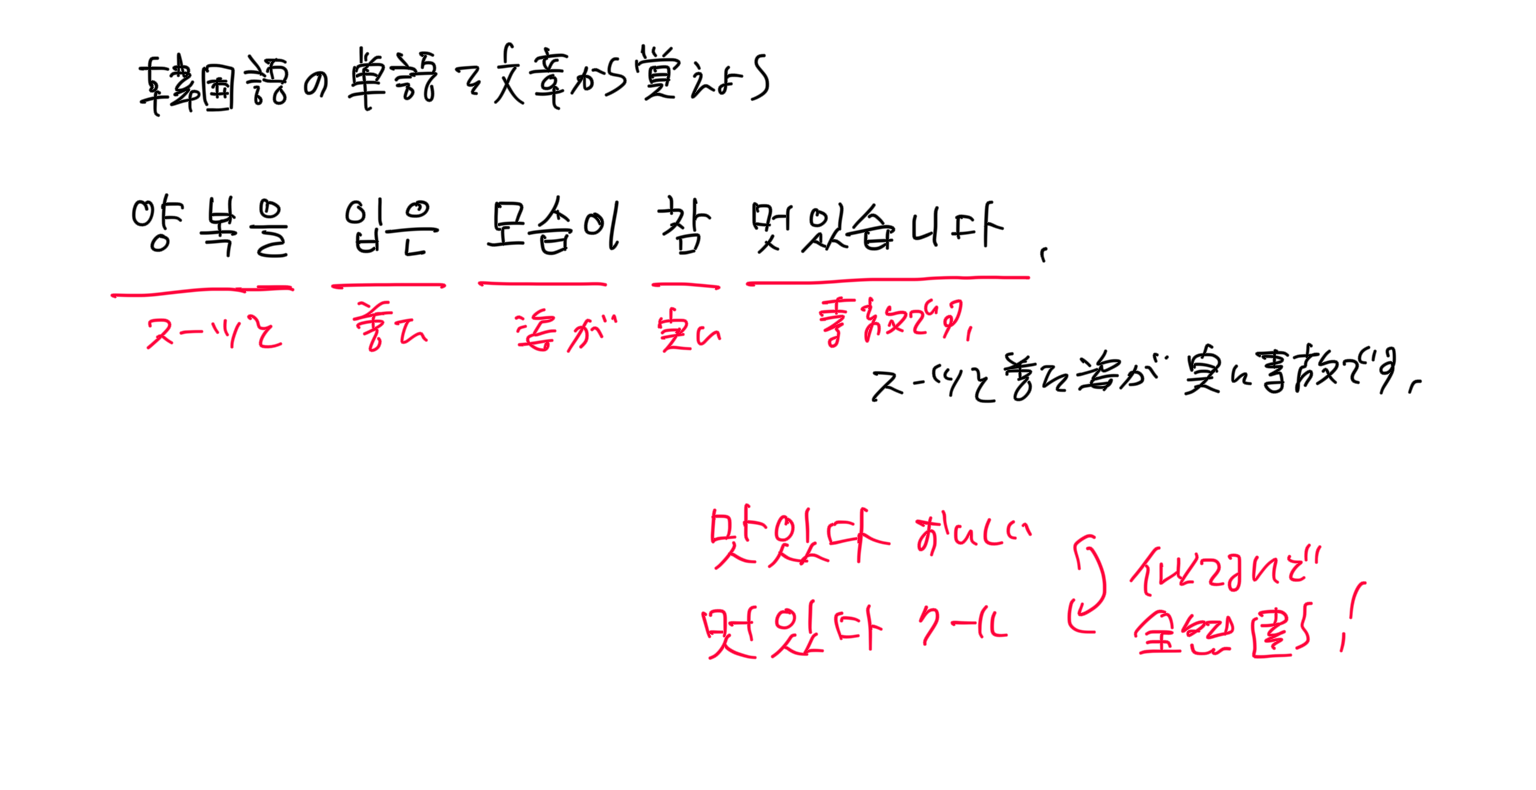 韓国語の単語を文章から覚えよう
양복을 입은 모습이 참 멋있습니다.
スーツを 着た 姿が 実に 素敵です。
スーツを着た姿が実に素敵です。
맛있다 おいしい
멋있다 クール
似てるけど
全然違う!